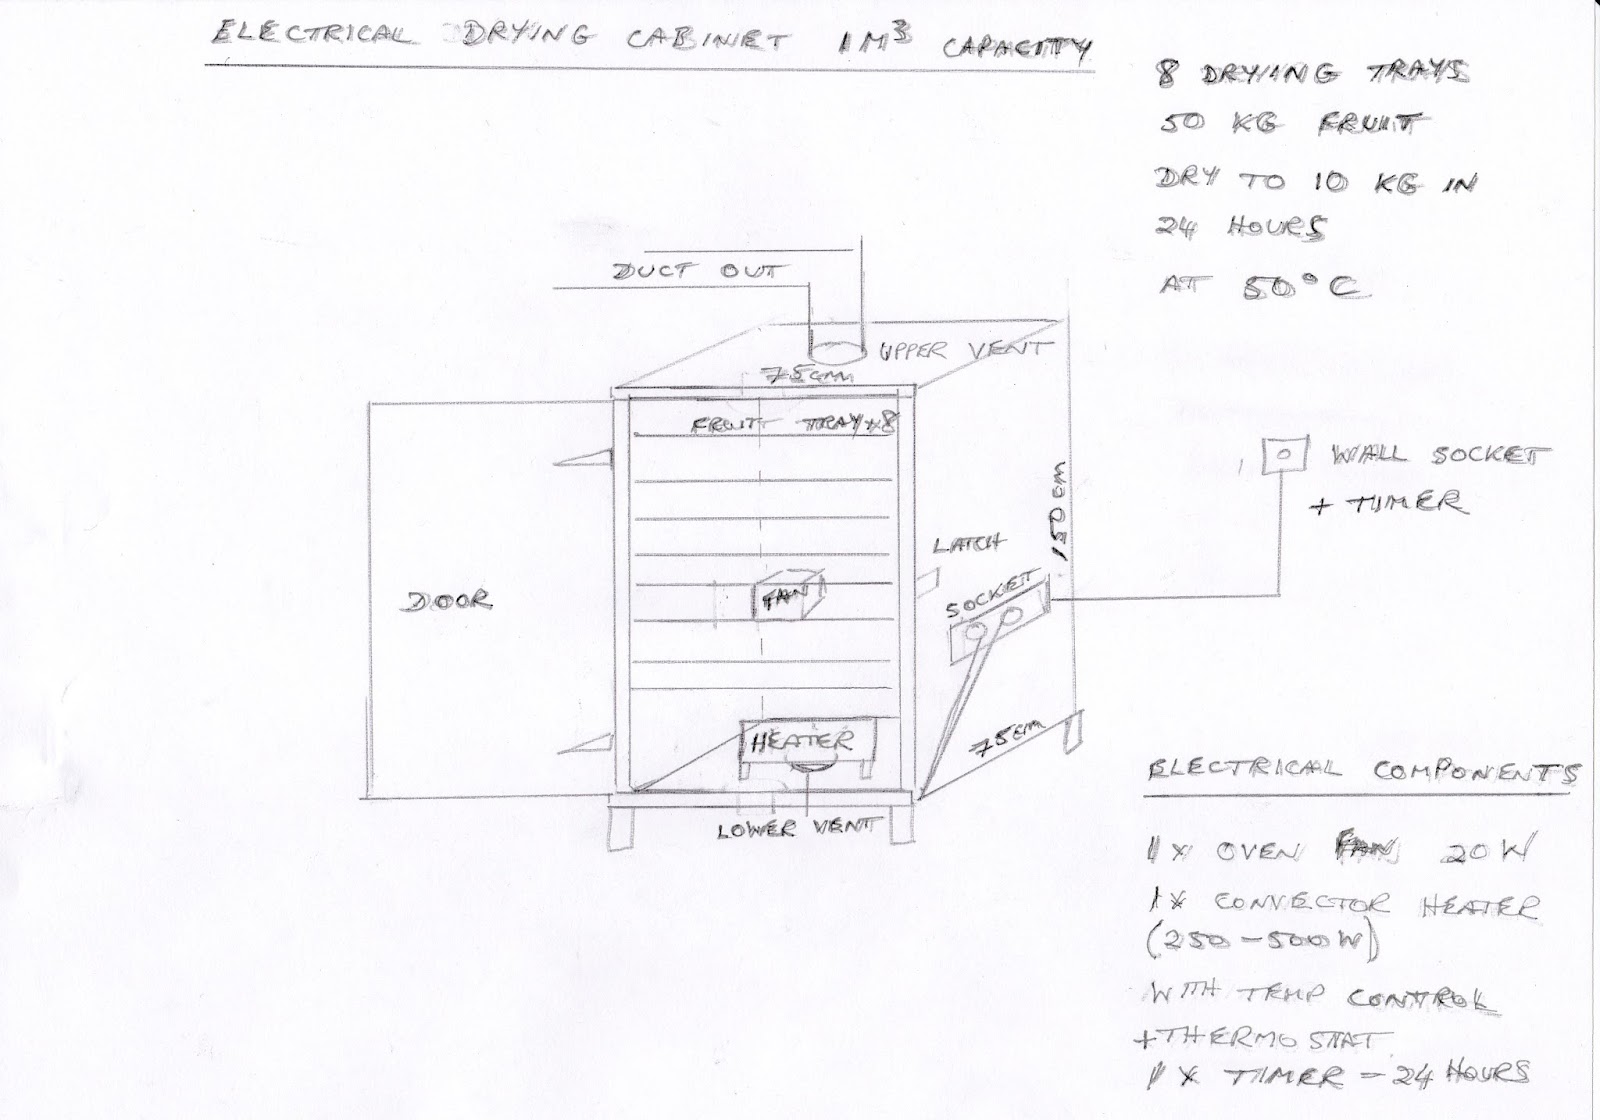 ELECTRICAL DRYING CABINET 1M³ CAPACITY
8 DRYING TRAYS
50 KG FRUIT
DRY TO 10 KG IN
24 HOURS
AT 50°C
DUCT OUT
UPPER VENT
75cm
FRUIT TRAY x 8
DOOR
FAN
LATCH
SOCKET
150cm
WALL SOCKET
+ TIMER
HEATER
75cm
LOWER VENT
ELECTRICAL COMPONENTS
1 x OVEN FAN 20 W
1 x CONVECTOR HEATER
(250 - 500 W)
WITH TEMP CONTROL
+ THERMOSTAT
1 x TIMER - 24 HOURS